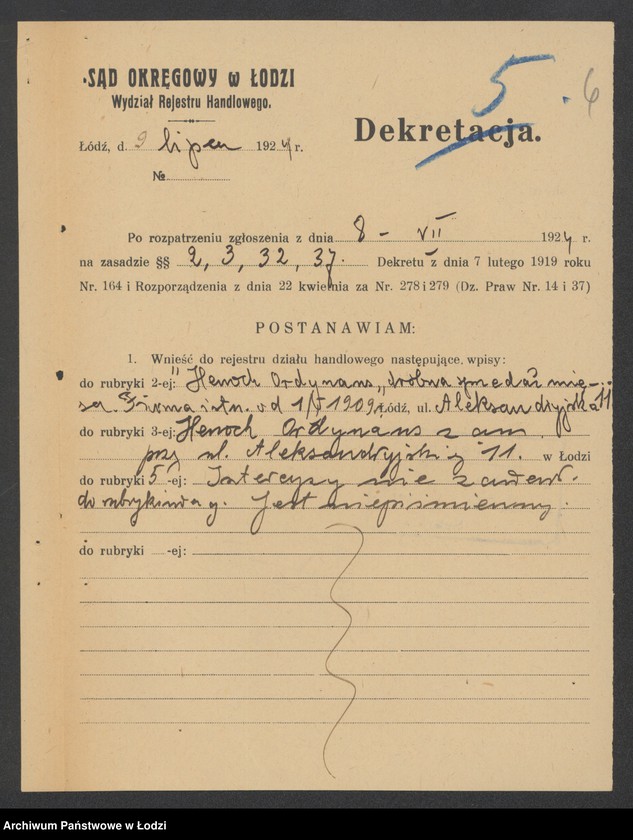 SĄD OKRĘGOWY w ŁODZI
Wydział Rejestru Handlowego.
5
6
Dekretacja.
Łódź, d. 9 lipca 1924 r.
№
Po rozpatrzeniu zgłoszenia z dnia 8 – VII 1924 r.
na zasadzie §§ 2, 3, 32, 37. Dekretu z dnia 7 lutego 1919 roku
Nr. 164 i Rozporządzenia z dnia 22 kwietnia za Nr. 278 i 279 (Dz. Praw Nr. 14 i 37)
POSTANAWIAM:
1. Wnieść do rejestru działu handlowego następujące wpisy:
do rubryki 2-ej: "Henoch Ordynans" drobna sprzedaż mię-
sa. Firma istn. od 1/I 1909 r. Łódź, ul. Aleksandryjska 11
do rubryki 3-ej: Henoch Ordynans zam.
przy ul. Aleksandryjskiej 11. w Łodzi
do rubryki 5-ej: Intercyzy nie zawierał.
do rubryki Jest niepiśmienny.
do rubryki -ej:
Archiwum Państwowe w Łodzi